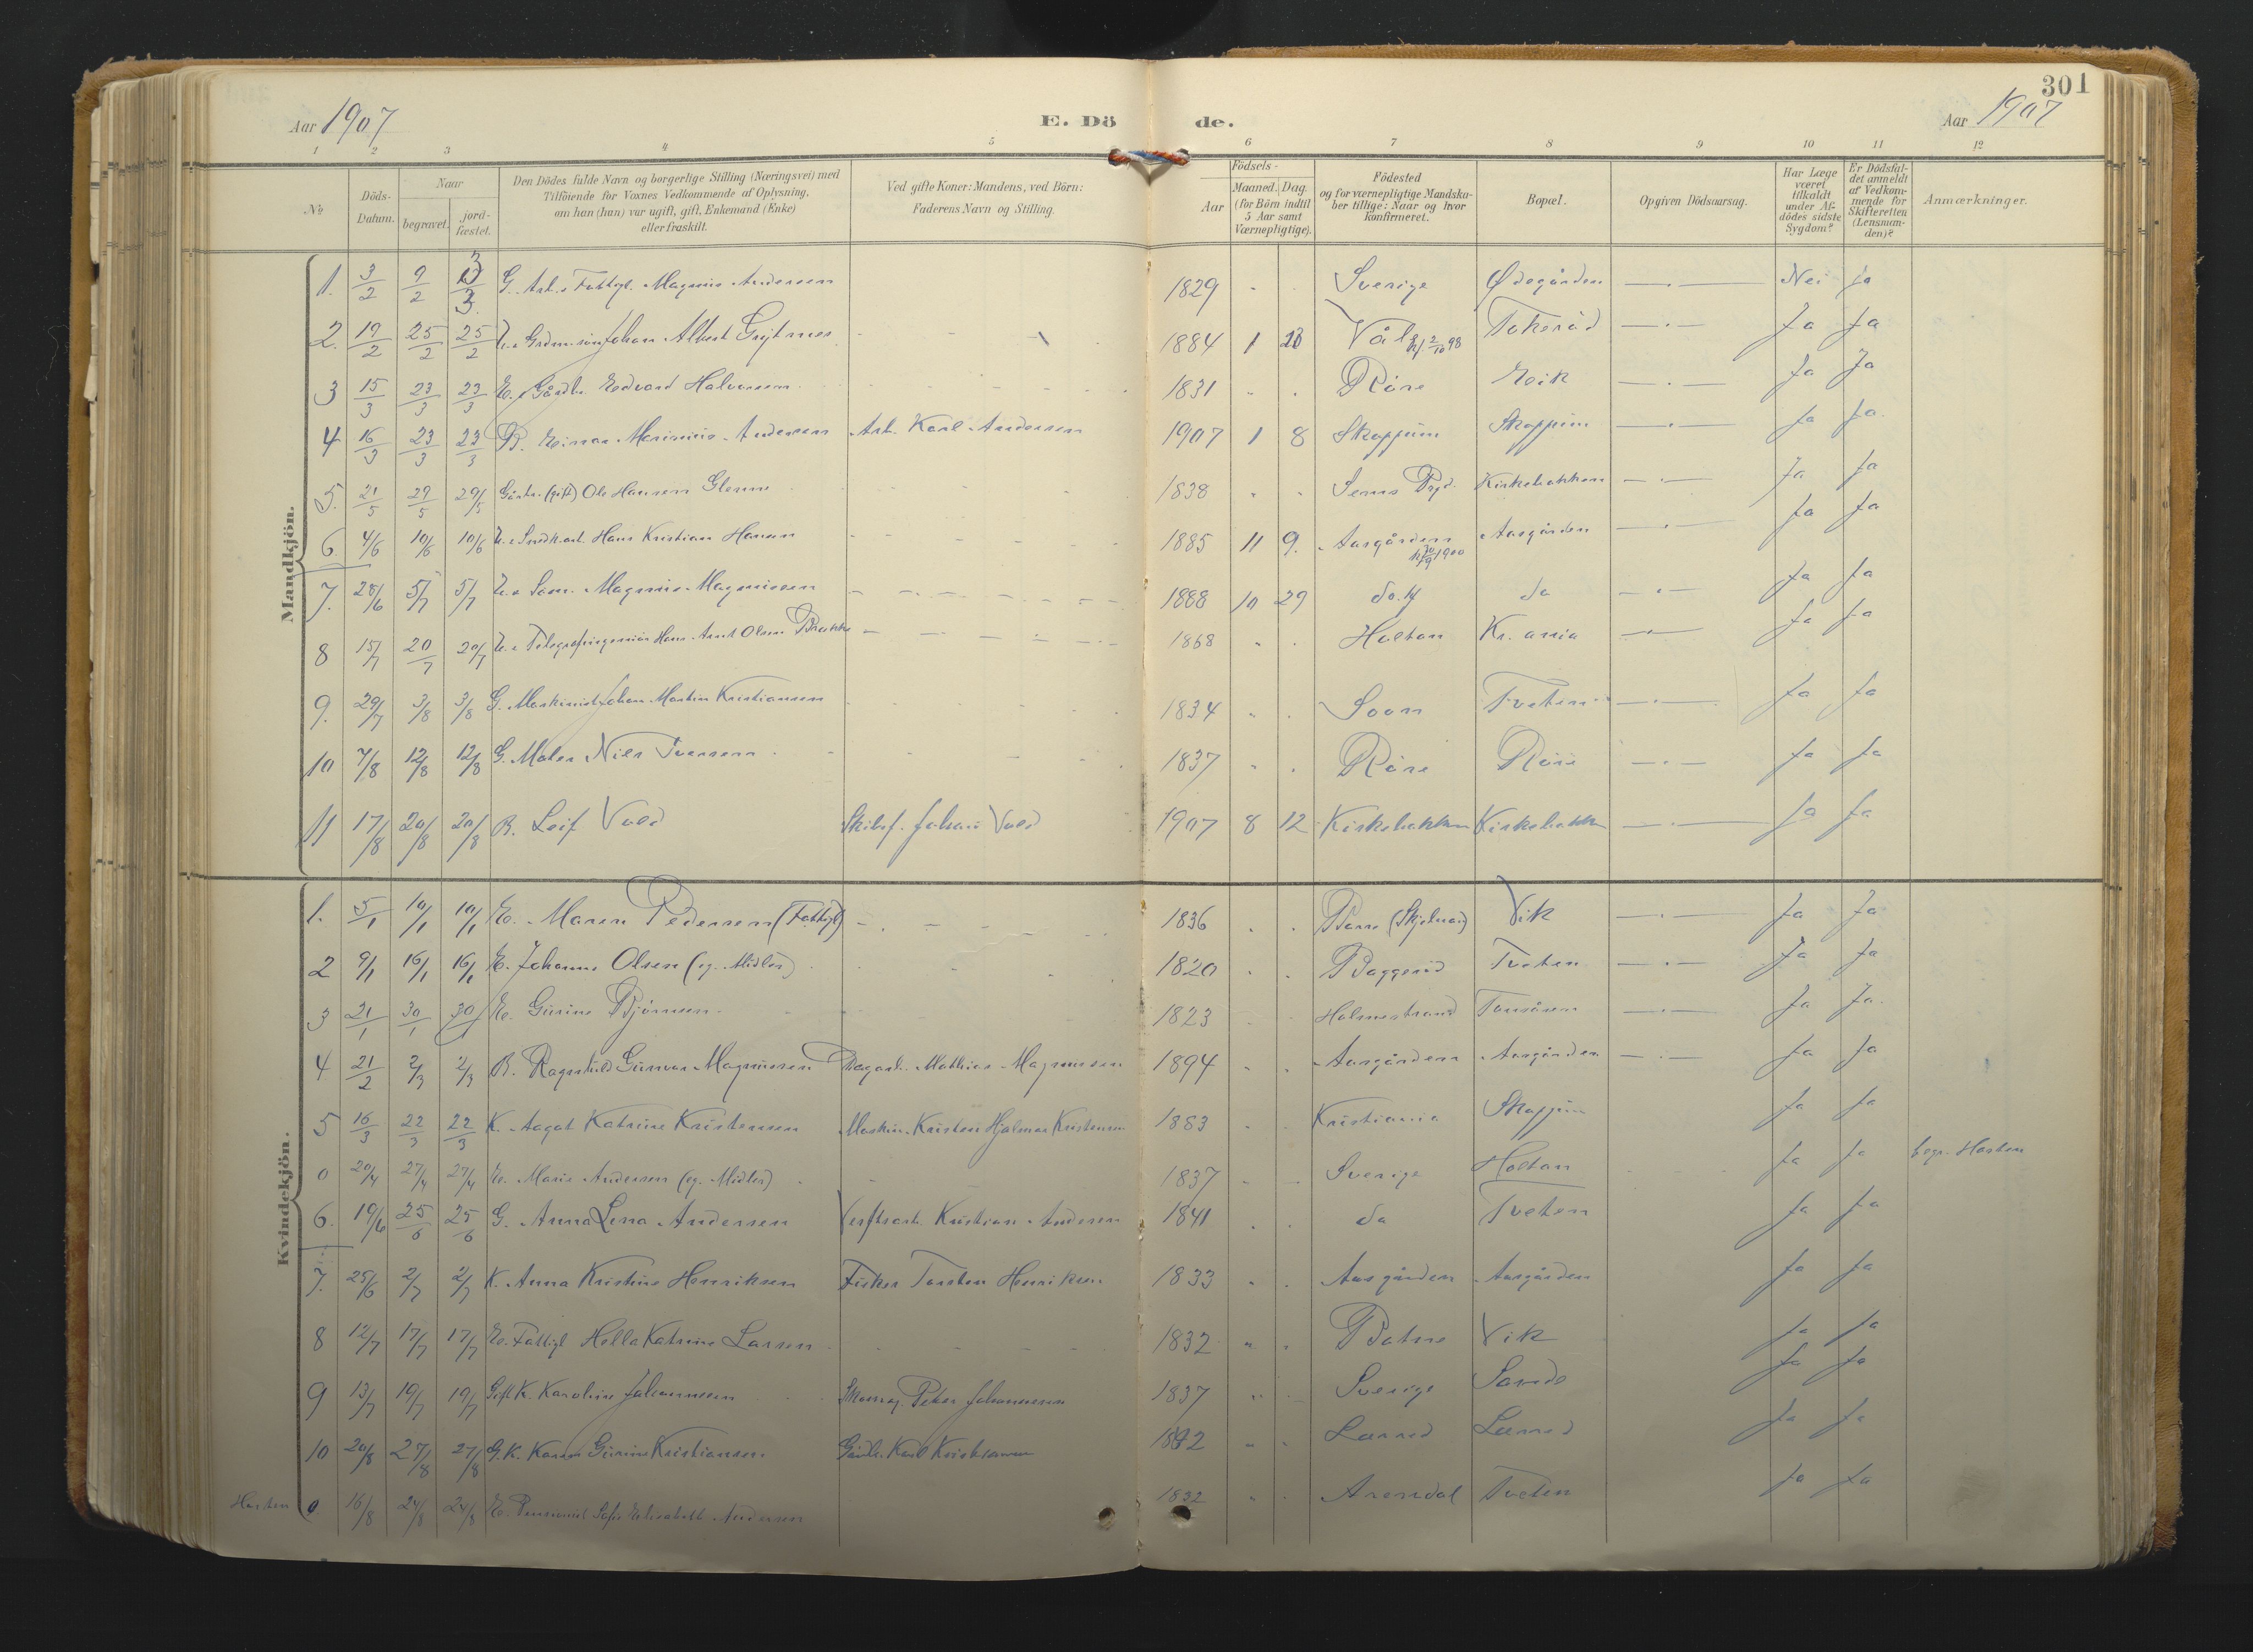 301
Aar 1907
E. Dö de.
Aar 1907
1 2 3 4 5 6 7 8 9 10 11 12
№
Döds-Datum.
Naar
begravet.
jord-fæstet.
Den Dödes fulde Navn og borgerlige Stilling (Næringsvei) med
Tilföiende for Voxnes Vedkommende af Oplysning.
om han (hun) var ugift, gift, Enkemand (Enke)
eller fraskilt.
Ved gifte Koner: Mandens, ved Börn:
Faderens Navn og Stilling.
Födsels-
Aar
Maaned. Dag.
(for Börn indtil
5 Aar samt
Værnepligtige).
Födested
og for værnepligtige Mandska-
ber tillige: Naar og hvor
konfirmeret.
Bopæl.
Opgiven Dödsaarsag.
Har Læge
været
tilkaldt
under Af-
dödes sidste
Sygdom?
Er Dödsfal-
det anmeldt
af Vedkom-
mende for
Skifteretten
(Lensman-
den)?
Anmærkninger.
Mandkjön.
1. 3/2 9/2 G. Arb. Fattigl. Magnus Andersen 1829 Sverige Ødegården Nei Ja
2. 19/2 25/2 25/2 Johan Albert 1884 1 Vål kf. 2/10 98 Tokeröd Ja Ja
3 15/3 23/3 23/3 E. Gårdbr. Edvard Halvorsen 1831 Röre Eeik Ja Ja
4 16/3 23/3 23/3 B. Einar Marinius Andersen Arb. Karl Andersen 1907 1 8 Skoppum Skoppum Ja Ja
5. 21/5 29/5 29/5 Gårbr. (gift) Ole Hansen Glenne 1838 Sems Kirkebakken Ja Ja
6. 4/6 10/6 10/6 U. Snedk.arb. Hans Kristian Hansen 1885 11 9. Aasgården 1900 Aasgården Ja Ja
7. 28/6 5/7 5/7 U. Søm. Magnus Magnussen 1888 10 29 do. do Ja Ja
8 15/7 20/7 20/7 U. Telegrafingeniör Hans Arnt Olsen Brekke 1868 Holtan Kr.ania Ja Ja
9. 29/7 3/8 3/8 G. Maskinist Johan Martin Kristiansen 1834 Soon Tveten Ja Ja
10 7/8 12/8 12/8 G. Maler Nils Iversen 1837 Röre Röre Ja Ja
11 17/8 20/8 20/8 B. Leif Vold Skibsf. Johan Vold 1907 8 12 Kirkebakken Kirkebakken Ja Ja
Kvindekjön.
1. 5/1 10/1 10/1 E. Maren Pedersen (Fattigl) 1836 Borre Vik Ja Ja
2 9/1 16/1 16/1 E. Johanne Olsen (eg. Midler) 1820 Baggeröd Tveten Ja Ja
3 21/1 30/1 30/1 E. Gurine Björnsen 1823 Holmestrand Ja Ja
4 21/2 2/3 2/3 B. Ragnhild Gunvor Magnussen Dagarb. Mathias Magnussen 1894 Aasgården Aasgården Ja Ja
5 16/3 22/3 22/3 K. Aagot Katrine Kristensen Maskin. Kristen Hjalmar Kristensen 1883 Kristiania Skoppum Ja Ja
0 20/4 27/4 27/4 E. Marie Andersen (eg. Midler) 1837 Sverige Holtan Ja Ja begr. Horten
6. 19/6 25/6 25/6 G. Anna Lena Andersen Verftsarb. Kristian Andersen 1841 do Tveten Ja Ja
7. 25/6 2/7 2/7 K. Anna Kristine Henriksen Fisker Torsten Henriksen 1833 Aasgården Aasgården Ja Ja
8 12/7 17/7 17/7 E. Fattigl Hella Katrine Larsen 1832 Botne Vik Ja Ja
9 13/7 19/7 19/7 Gift K. Karoline Johannessen Skomag. Peter Johannessen 1837 Sverige Sande Ja Ja
10 20/8 27/8 27/8 G.K. Karen Gurine Kristiansen Gårdbr. Karl Kristiansen Ja Ja
Horten 0 16/8 24/8 24/8 E. Sofie Elisabeth Andersen 1832 Arendal Tveten Ja Ja